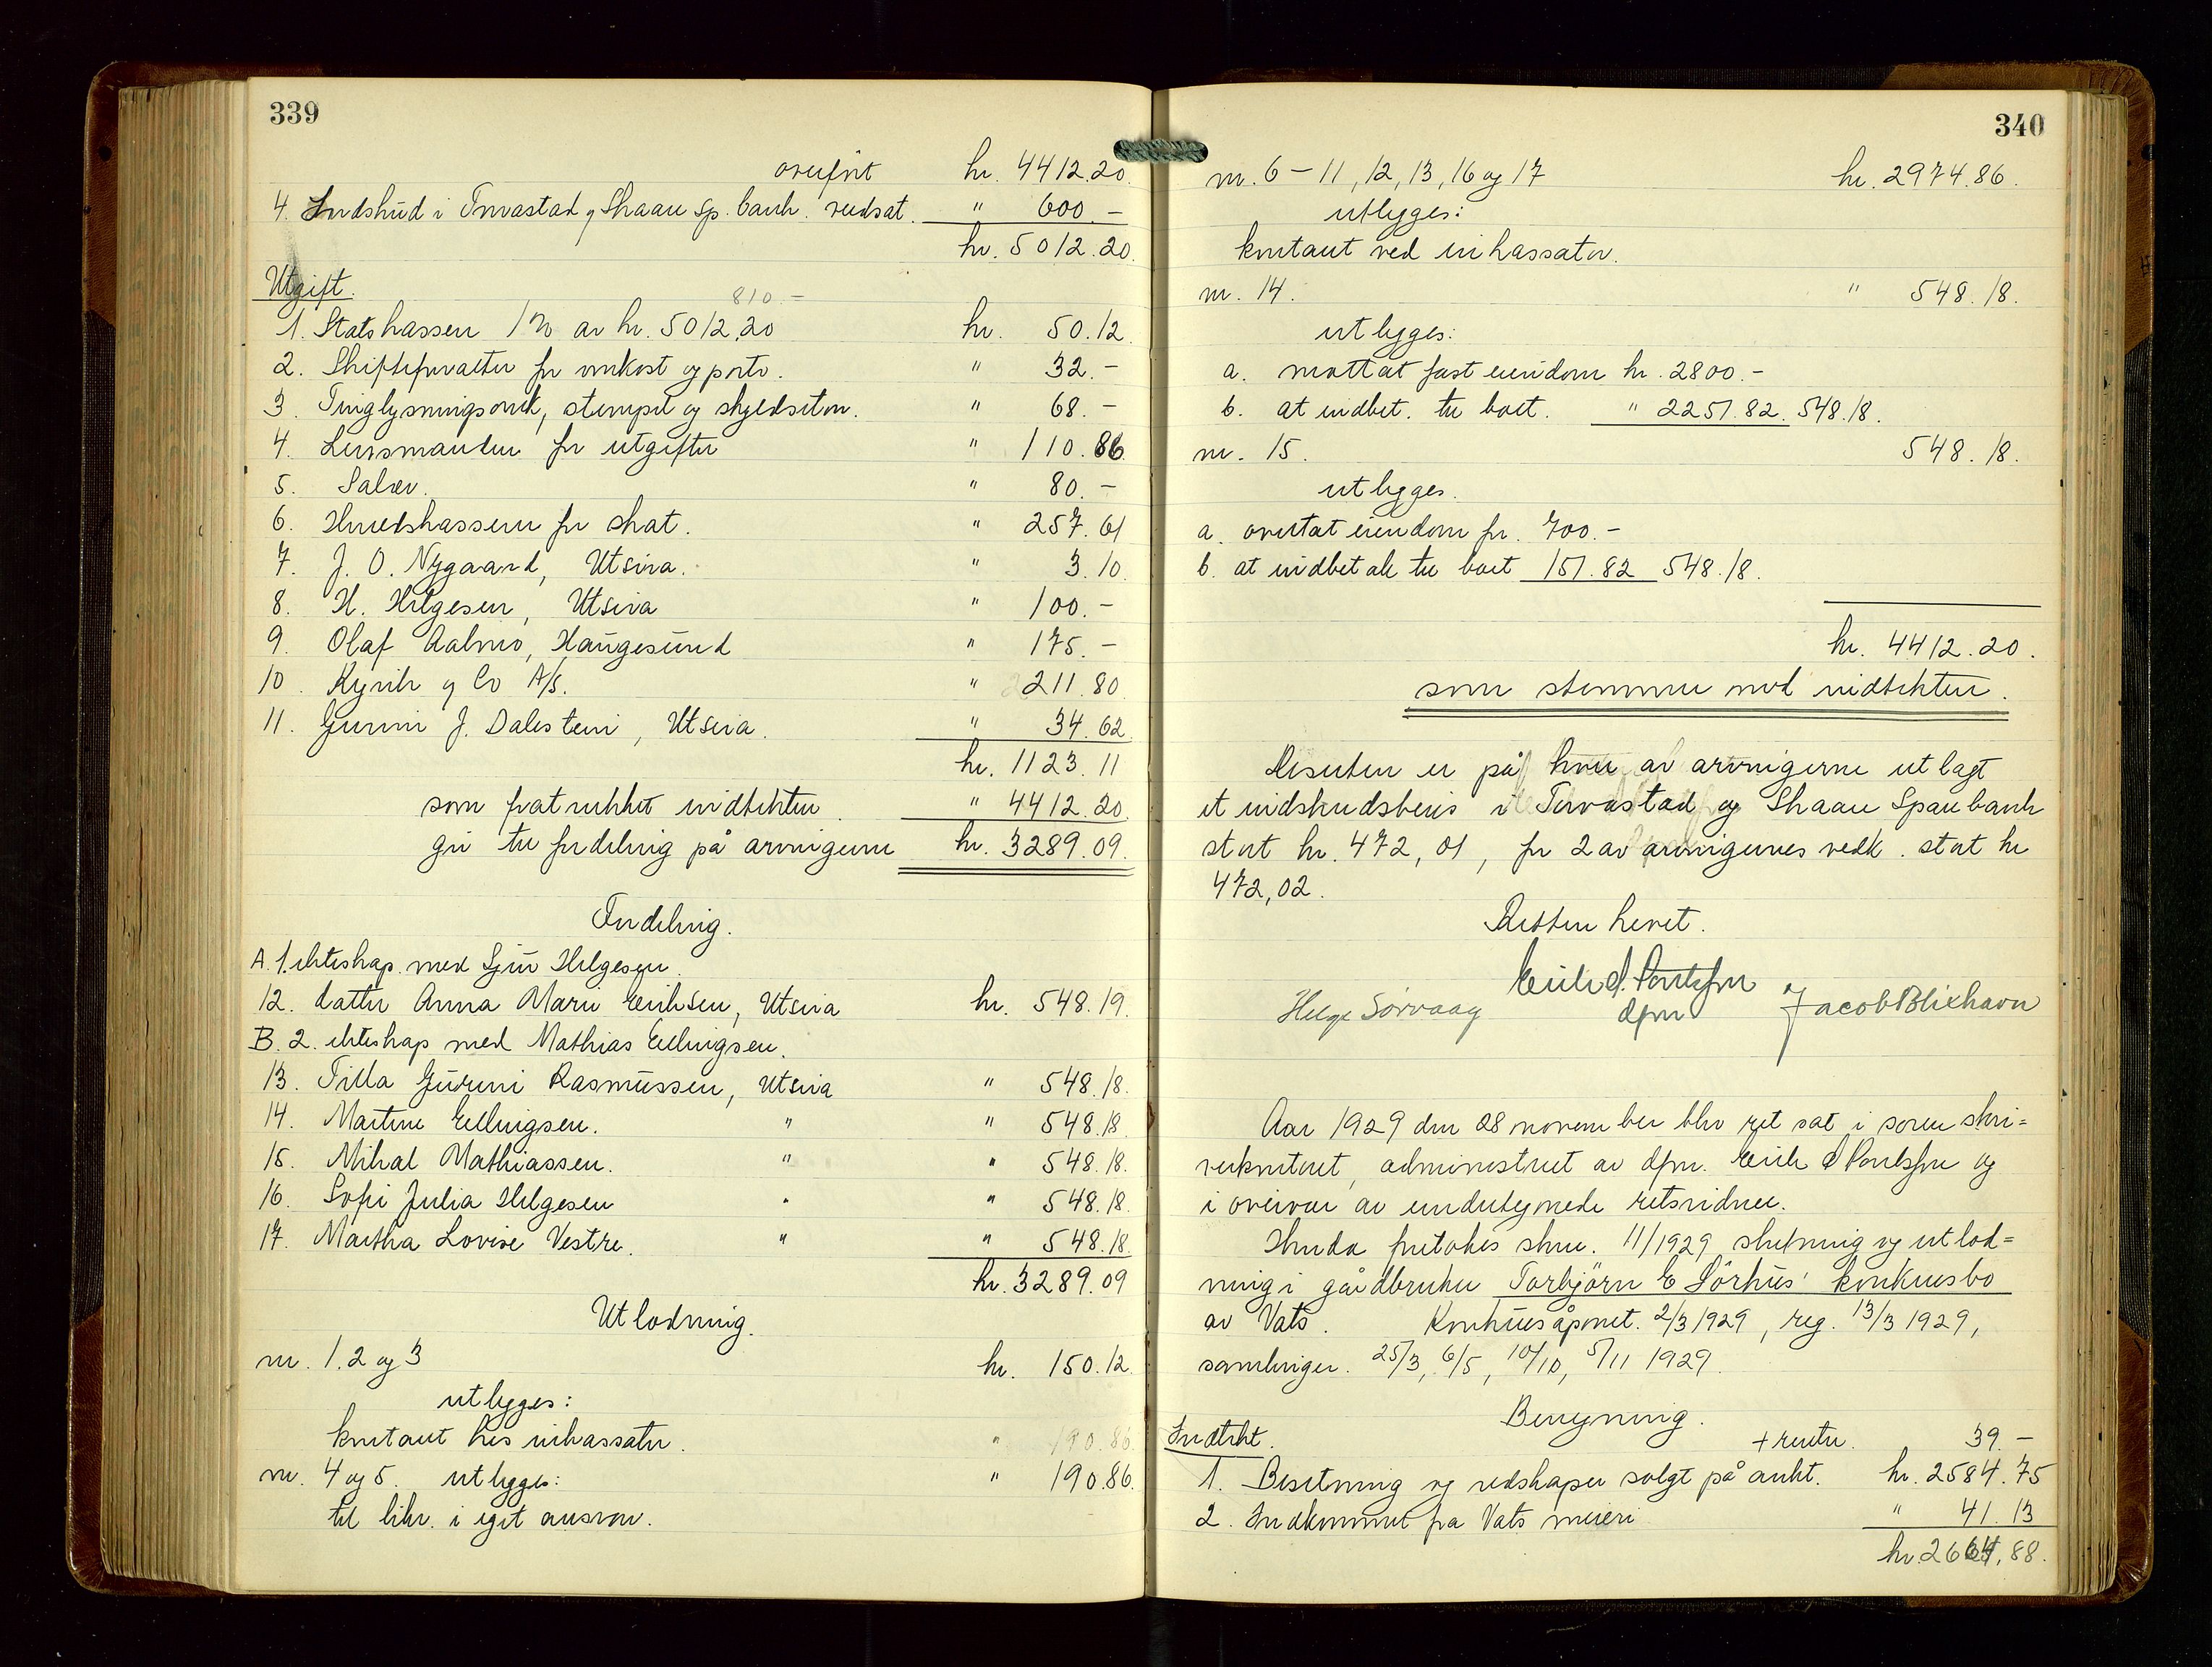 339
overført kr. 4412.20
4. Indskud i Torvastad og Skaare Sp. bank. nedsat. " 600.–
kr. 5012.20.
Utgift. 810.–
1. Statskassen 1% av kr. 5012.20 kr. 50.12
2. Skifteforvalter for omkost og porto. " 32.–
3. Tinglysningsomk, stempel og skjødseton. " 68.–
4. Lensmanden for utgifter " 110.86
5. Salær. " 80.–
6. Herredskassen for skat. " 257.61
7. J. O. Nygaard, Utsira. " 3.10.
8. H. Helgesen, Utsira " 100.–
9. Olaf Aalmo, Haugesund " 175.–
10. Kyvik og Co A/S. " 211.80
11. Gurine J. Dalestein, Utsira. " 34.62
kr. 1123.11
som fratrukket indtekten " 4412.20
gir til fordeling på arvingerne kr. 3289.09.
Fordeling.
A. 1. ekteskap med Sjur Helgesen.
12. datter Anna Marie Eriksen, Utsira kr. 548.19.
B. 2. ekteskap med Mathias Ellingsen.
13. Tilla Gurine Rasmussen, Utsira " 548.18.
14. Martine Ellingsen. " " 548.18
15. Mikal Mathiassen. " " 548.18.
16. Sofie Julia Helgesen " " 548.18
17. Martha Lovise Vestre. " " 548.18
kr. 3289.09
Utlodning.
nr. 1. 2 og 3 kr. 150.12
utlegges:
kontant hos inkassator. " 190.86
nr. 4 og 5. utlegges: " 190.86.
til likv. i eget ansvar.
340
nr. 6 – 11, 12, 13, 16 og 17 kr. 2974.86.
utlegges:
kontant ved inkassator.
nr. 14. " 548.18.
utlegges:
a. mottat fast eiendom kr. 2800.–
b. at indbet. til boet. " 2251.82. 548.18.
nr. 15. 548.18.
utlegges.
a. overtat eiendom for 700.–
b. at indbetale til boet 151.82 548.18.
kr. 4412.20.
som stemmer med indtekten.
Desuten er på hver av arvingerne utlagt
et indskudsbevis i Torvastad og Skaare Sparebank
stort kr. 472,01, for 2 av arvingernes vedk. stort kr
472,02.
Retten hevet.
Erik S. Poulsson
dfm
Helge Sørvaag og Jacob Blixhavn
Aar 1929 den 28 november blev ret sat i sorenskri=
verkontoret, administrert av dfm. Erik S Poulsson og
i overvær av undertegnede retsvidner.
Herda foretokes skr. 11/1929 slutning og utlod=
ning i gårdbruker Torbjörn E Sörhus' konkursbo
av Vats. Konkursåpnet. 2/3 1929, reg. 13/3 1929,
samlinger. 25/3, 6/5, 10/10, 5/11 1929.
Beregning.
Indtekt. + renter. 39.–
1. Besetning og redskaper solgt på aukt. kr. 2584.75
2. Indkommet fra Vats meieri " 41.13
kr. 2664,88.